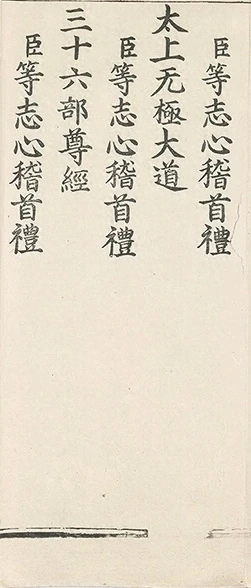 臣等志心稽首禮
太上无極大道
臣等志心稽首禮
三十六部尊經
臣等志心稽首禮